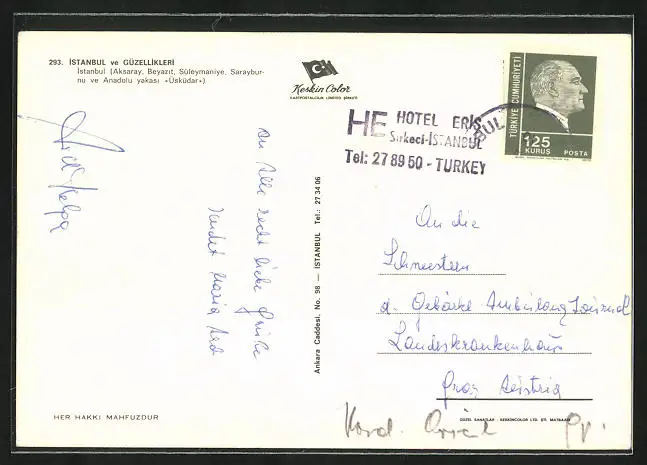 293. İSTANBUL ve GÜZELLİKLERİ
İstanbul (Aksaray, Beyazıt, Süleymaniye, Saraybur-
nu ve Anadolu yakası «Üsküdar»)
Keskin Color
KARTPOSTALCILIK LİMİTED ŞİRKETİ
TÜRKİYE CUMHURİYETİ
125
KURUŞ
POSTA
HE HOTEL ERİŞ
Sirkeci-İSTANBUL
Tel: 27 89 50 - TURKEY
BUL
An Alle recht liebe Grüße
sendet Maria
Helga
Ankara Caddesi. No. 98 — İSTANBUL Tel.: 27 34 06
An die
Schwestern
d. Ambulanz
Landeskrankenhaus
Graz
HER HAKKI MAHFUZDUR
GÜZEL SANATLAR - KESKİNCOLOR LTD. ŞTİ. MATBAASI